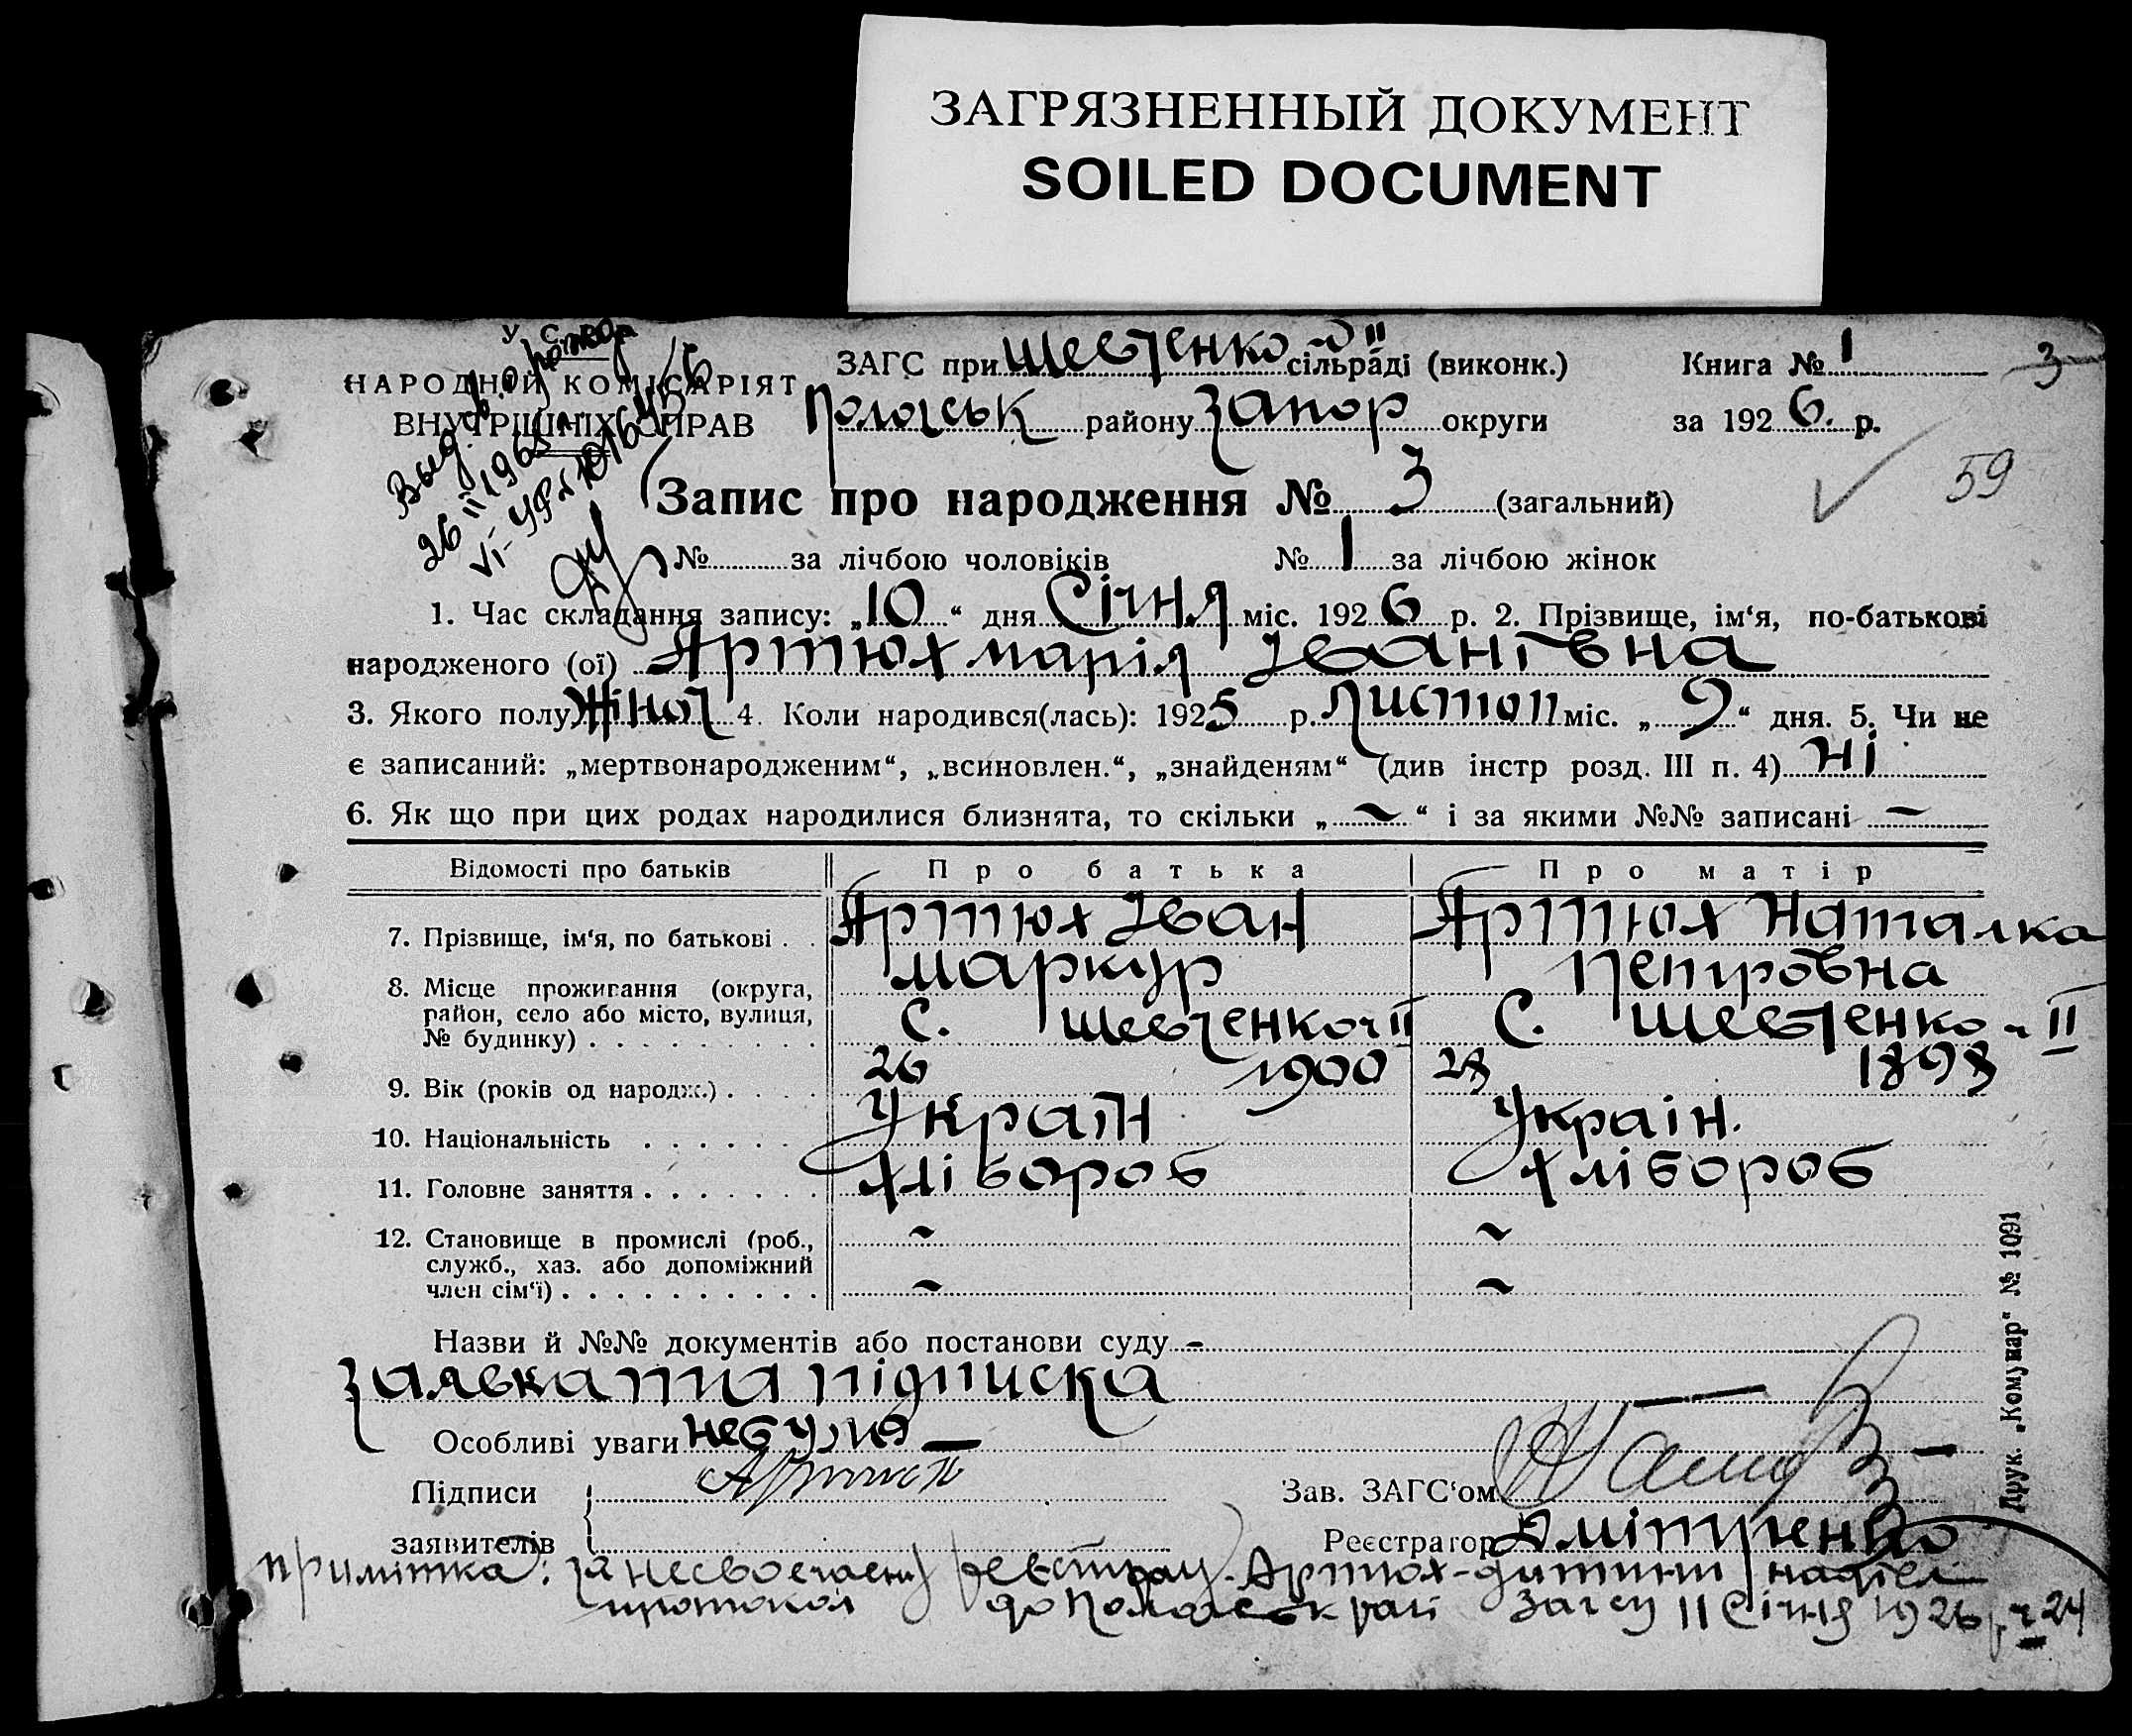 ЗАГРЯЗНЕННЫЙ ДОКУМЕНТ
SOILED DOCUMENT
У. С.
НАРОДНІЙ КОМІСАРІЯТ
ВНУТРІШНІХ СПРАВ
Выд.
26 II 196
ЗАГС при Шевченко II сільраді (виконк.) Книга № 1
3
Пологськ району Запор округи за 1926. р.
59
Запис про народження № 3 (загальний)
№ за лічбою чоловіків № 1 за лічбою жінок
1. Час складання запису: „10“ дня Січня міс. 1926 р. 2. Прізвище, ім‘я, по-батькові
народженого (ої) Артюх Марія Іванівна
3. Якого полу Жіноч 4. Коли народився(лась): 1925 р. Листоп міс. „9“ дня. 5. Чи не
є записаний: „мертвонародженим“, „всиновлен.“, „знайденям“ (див інстр розд. III п. 4) ні
6. Як що при цих родах народилися близнята, то скільки „~“ і за якими №№ записані ~
Відомості про батьків Про батька Про матір
7. Прізвище, ім‘я, по батькові . . Артюх Іван Артюх Наталка
Маркур Петровна
8. Місце прожигання (округа, район, село або місто, вулиця, № будинку) . . . . . . . . . С. Шевченко ч II С. Шевченко ч II
9. Вік (років од народж.) . . . . 26 1900 28 1898
10. Національність . . . . . . Україн Украін.
11. Головне заняття . . . . . . . Хлібороб Хлібороб
12. Становище в промислі (роб., ~ ~
служб., хаз. або допоміжний
член сім‘ї) . . . . . . . . . . ~ ~
Назви й №№ документів або постанови суду -
Заявка та підписка
Особливі уваги небуло —
Підписи Зав. ЗАГС‘ом
заявителів Реєстратор Дмітренко
Друк. „Комунар“ № 1091
примітка: за несвоечасну реєстрац. Артюх-дитини
протокол до Пологськ рай Загсу 11 Січня 1926 р. ч 24